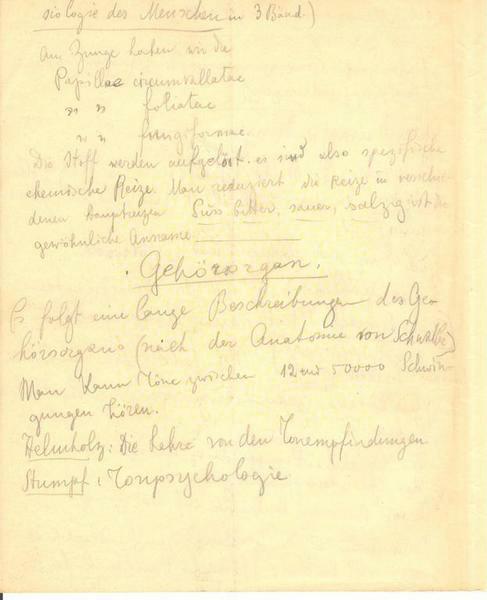 siologie des Menschen in 3 Bänd.)
Am Zunge haben wir die
Papillae circumvallatae
" " foliatae
" " fungiformae
Die Stoff werden aufgelöst. es sind also spezifische
chemische Reize. Man reduziert die Reize in verschie
denen Hauptreizen Süss bitter, sauer, salzig ist die
gewöhnliche Anname
Gehörorgan.
Es folgt eine lange Beschreibungen des Ge-
hörsorgans (nach der Anatomie von Schwalbe)
Man kann Töne zwischen 12 und 50000 Schwin
gungen hören.
Helmholz: Die Lehre von den Tonempfindungen
Stumpf: Tonpsychologie